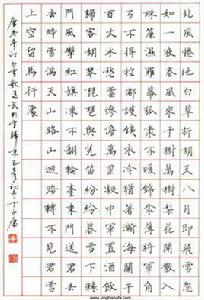 北風捲地白草折胡天八月即飛雪忽
如一夜春風來千樹萬樹梨花開散入
珠簾濕羅幕狐裘不暖錦衾薄將軍角
弓不得控都護鐵衣冷猶著瀚海闌干
百丈冰愁雲慘淡萬里凝中軍置酒飲
歸客胡琴琵琶與羌笛紛紛暮雪下轅
門風掣紅旗凍不翻輪臺東門送君去
去時雪滿天山路山迴路轉不見君雪
上空留馬行處
唐岑參詩白雪歌送武判官歸京 丁永康
www.yingbishufa.com